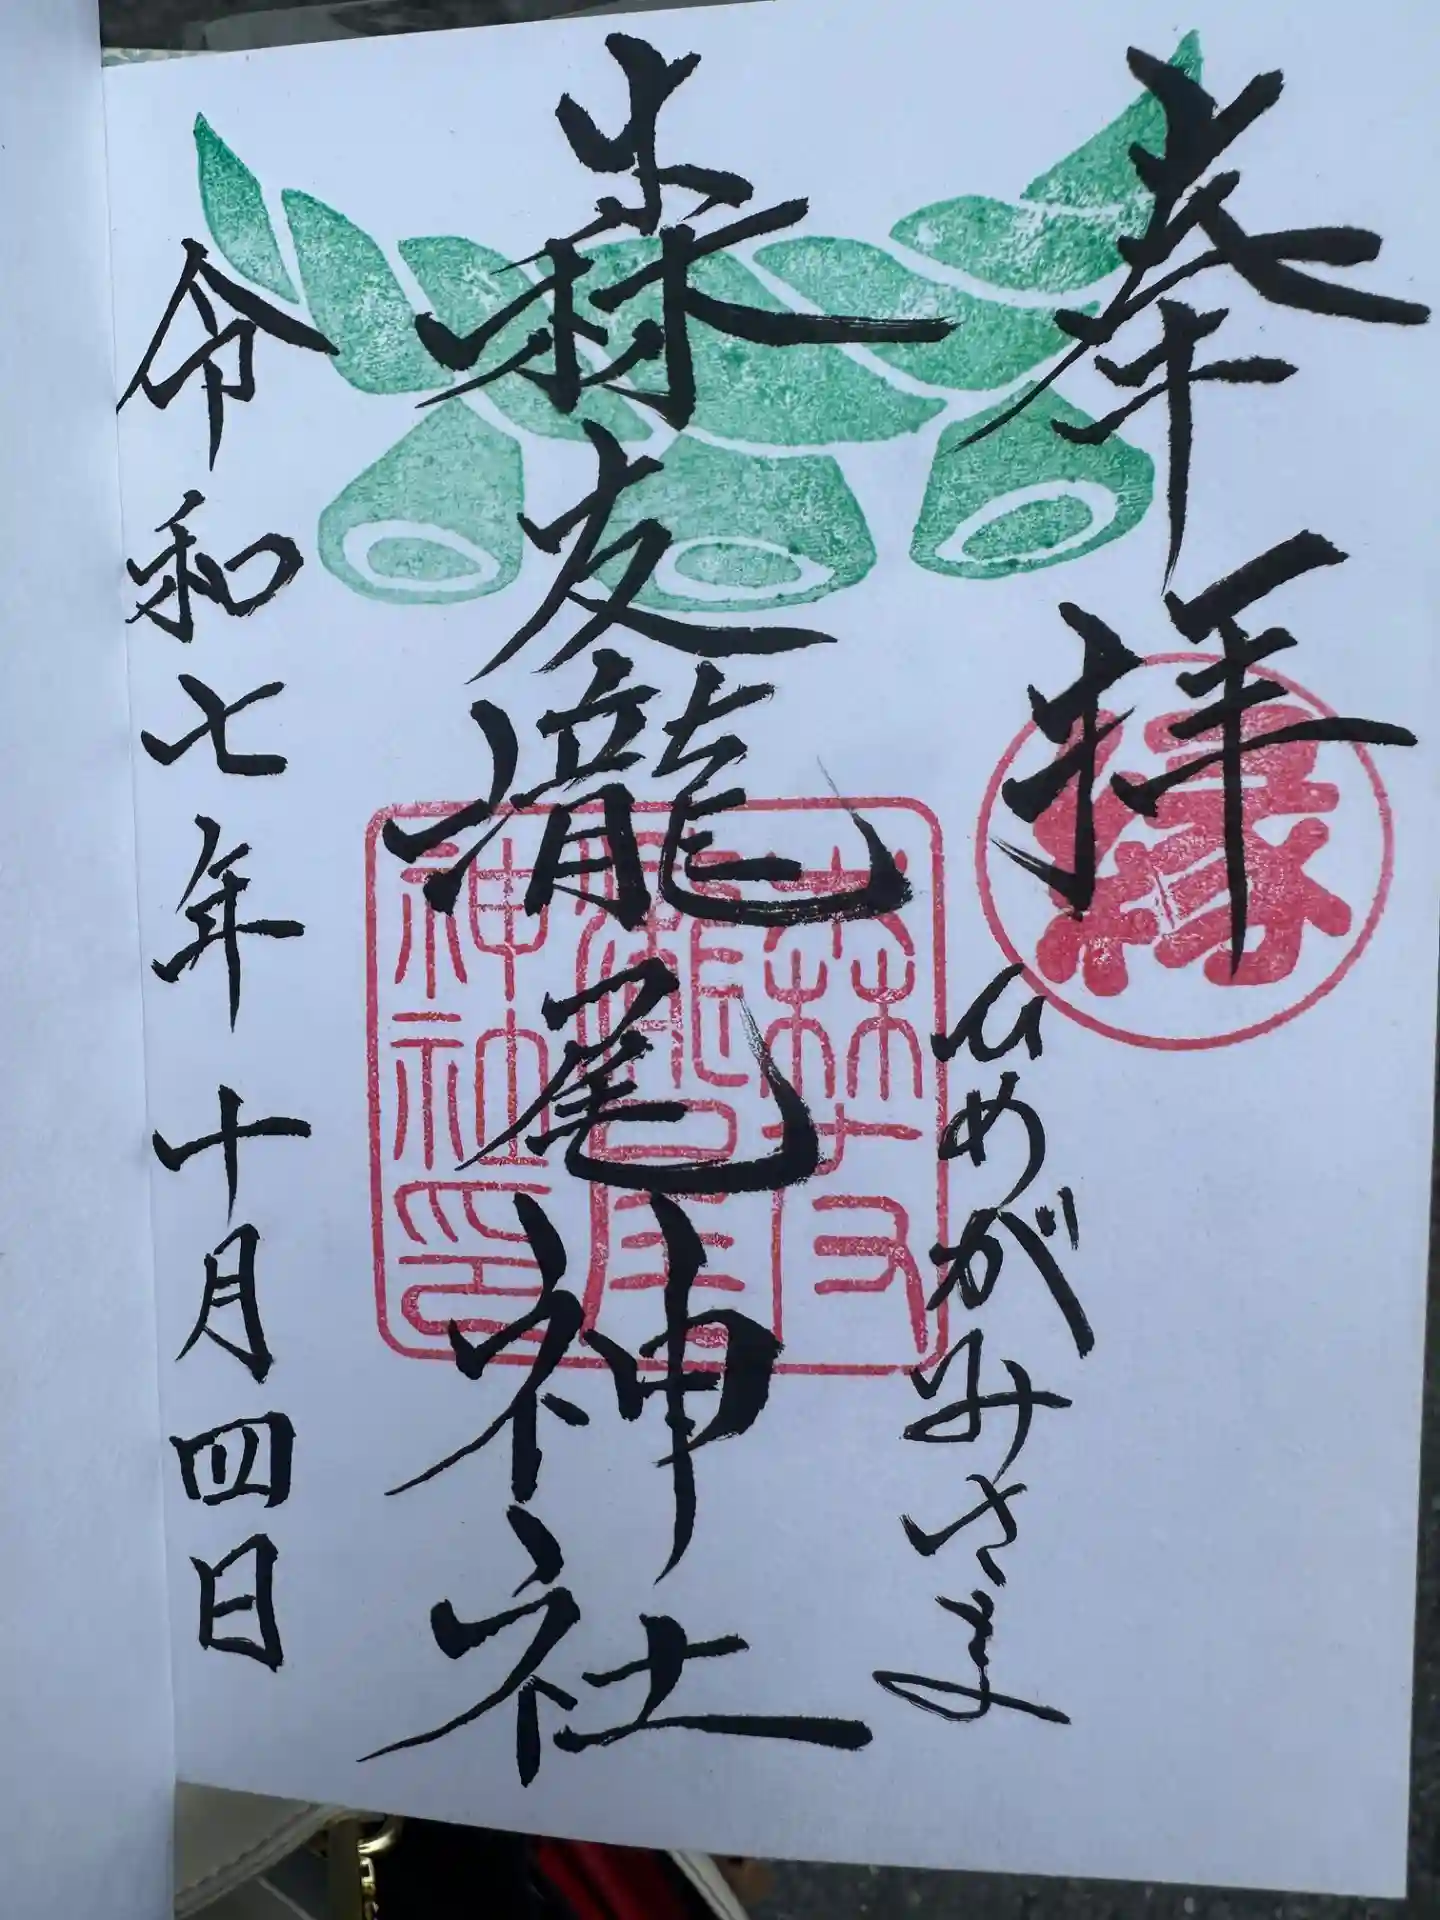 奉拝
縁
ひめがみさま
森友瀧尾神社
森友
瀧尾
神社印
令和七年十月四日